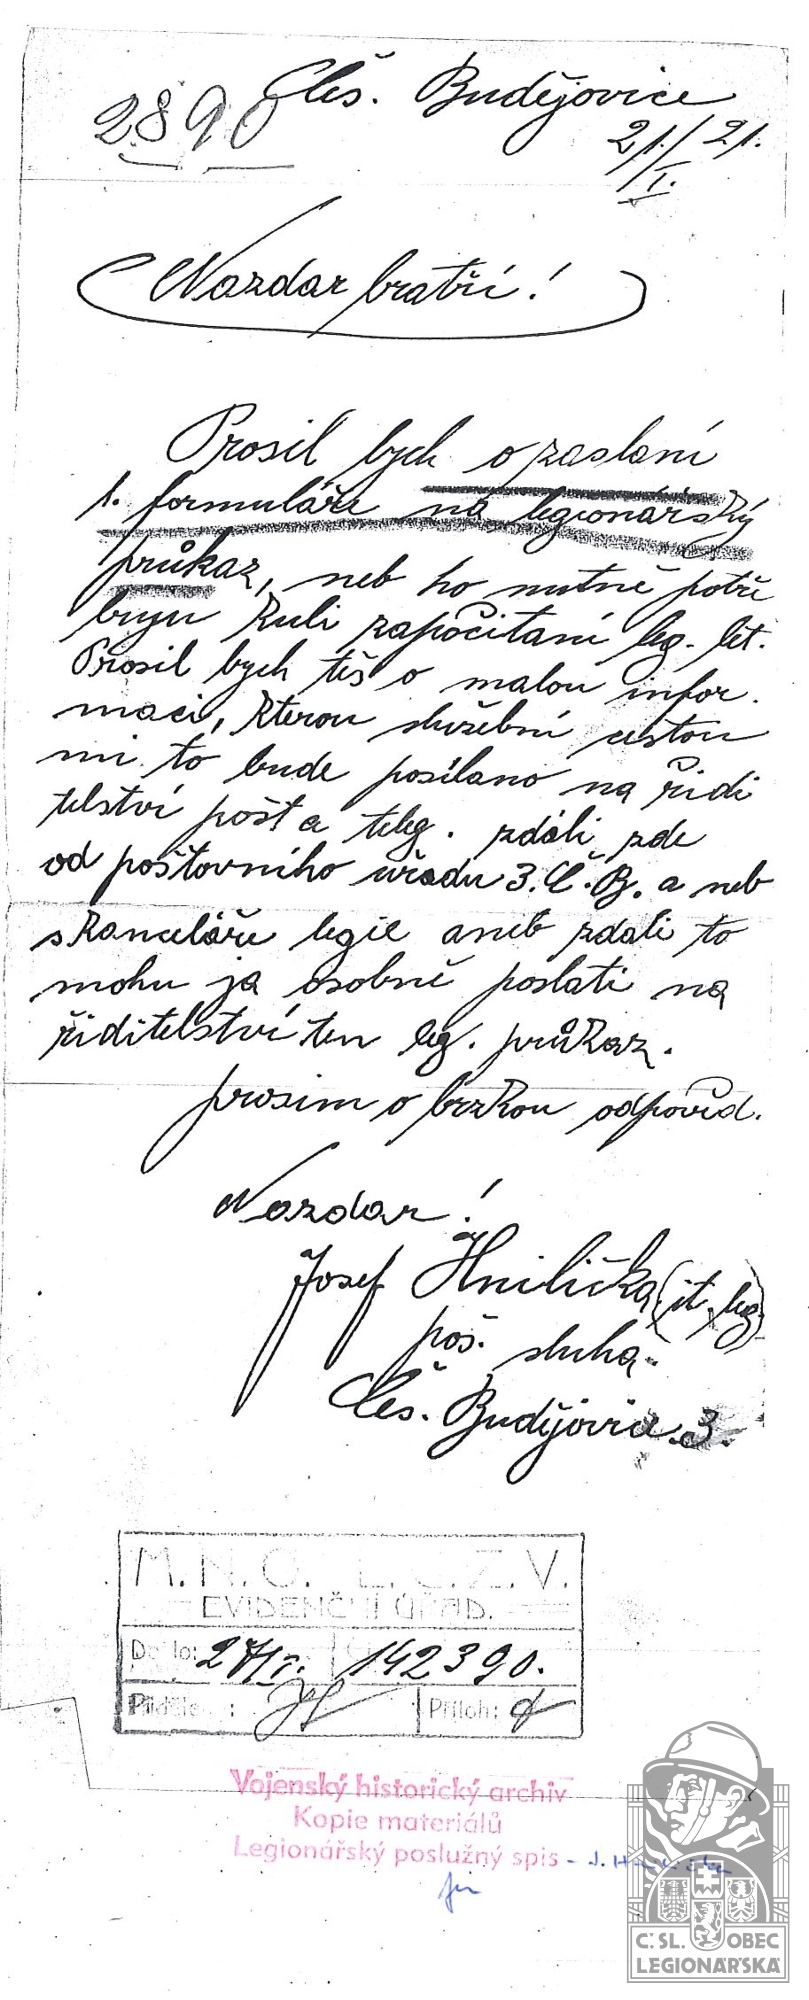 2890 Čes. Budějovice
21./I. 21.
Nazdar bratří!
Prosil bych o zaslaní
1. formuláře na legionářský
průkaz, neb ho nutně potře
buju kuli započitaní leg. let.
Prosil bych též o malou infor.
maci, kterou služební cestou
mi to bude posílano na ředi
telství pošt a teleg. zdáli zde
od poštovního uřadu 3. Č. B. a neb
s kanceláře legie aneb zdali to
mohu ja osobně poslati na
řiditelství ten leg. průkaz.
prosim o brzkou odpověd.
Nazdar!
Josef Hnilička (it. leg)
poš. sluha.
Čes. Budějovice 3.
M.N.O. L.Č.Z.V.
EVIDENČNÍ ÚŘAD.
Došlo: 27/I. 142390.
Přiděleno: Příloh:
Vojenský historický archiv
Kopie materiálů
Legionářský poslužný spis - J. Hnilička
Č. SL. OBEC
LEGIONÁŘSKÁ